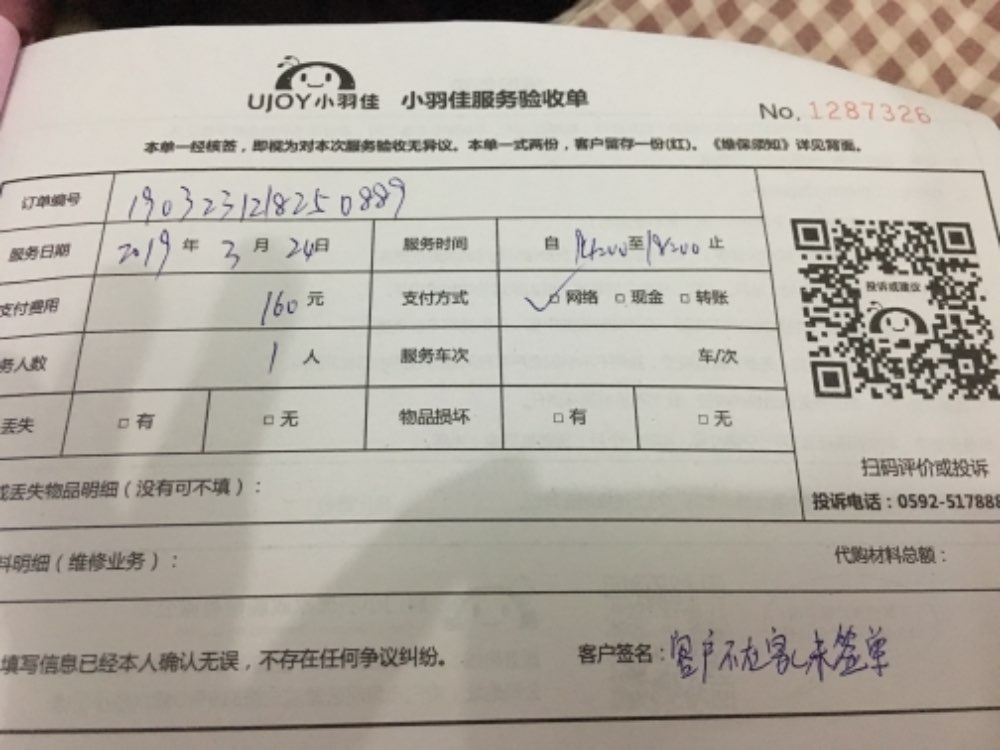 UJOY小羽佳 小羽佳服务验收单
No. 1287326
本单一经核签，即视为对本次服务验收无异议。本单一式两份，客户留存一份(红)。《维保须知》详见背面。
订单编号 190323121825 0889
服务日期 2019 年 3 月 24 日 服务时间 自 14:00 至 18:00 止
支付费用 160 元 支付方式 ✓□ 网络 □ 现金 □ 转账
务人数 1 人 服务车次 车/次
丢失 □ 有 □ 无 物品损坏 □ 有 □ 无
投诉或建议
扫码评价或投诉
投诉电话：0592-517888
或丢失物品明细（没有可不填）：
料明细（维修业务）： 代购材料总额：
填写信息已经本人确认无误，不存在任何争议纠纷。 客户签名：客户不在家，未签单